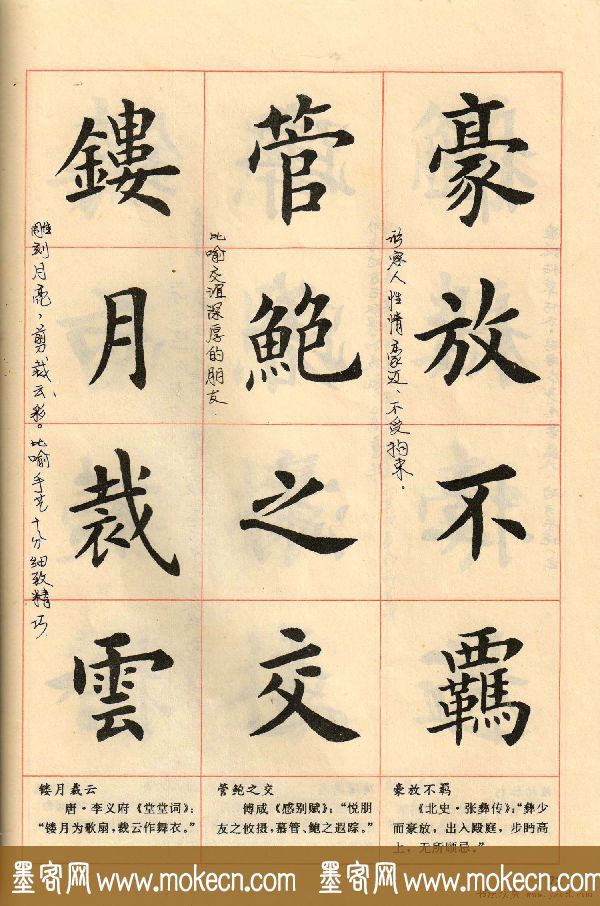 豪放不羈
管鮑之交
鏤月裁雲
形容人性情豪迈、不受拘束。
比喻交谊深厚的朋友.
雕刻月亮，剪裁云彩。比喻手艺十分细致精巧
豪放不羁
《北史·张彝传》：“彝少
而豪放，出入殿庭，步眄高
上，无所顾忌。”
管鲍之交
傅咸《感别赋》：“悦朋
友之攸摄，慕管、鲍之遐踪。”
镂月裁云
唐·李义府《堂堂词》：
“镂月为歌扇，裁云作舞衣。”
墨客网 www.mokecn.com 墨客网 www.mokecn.com